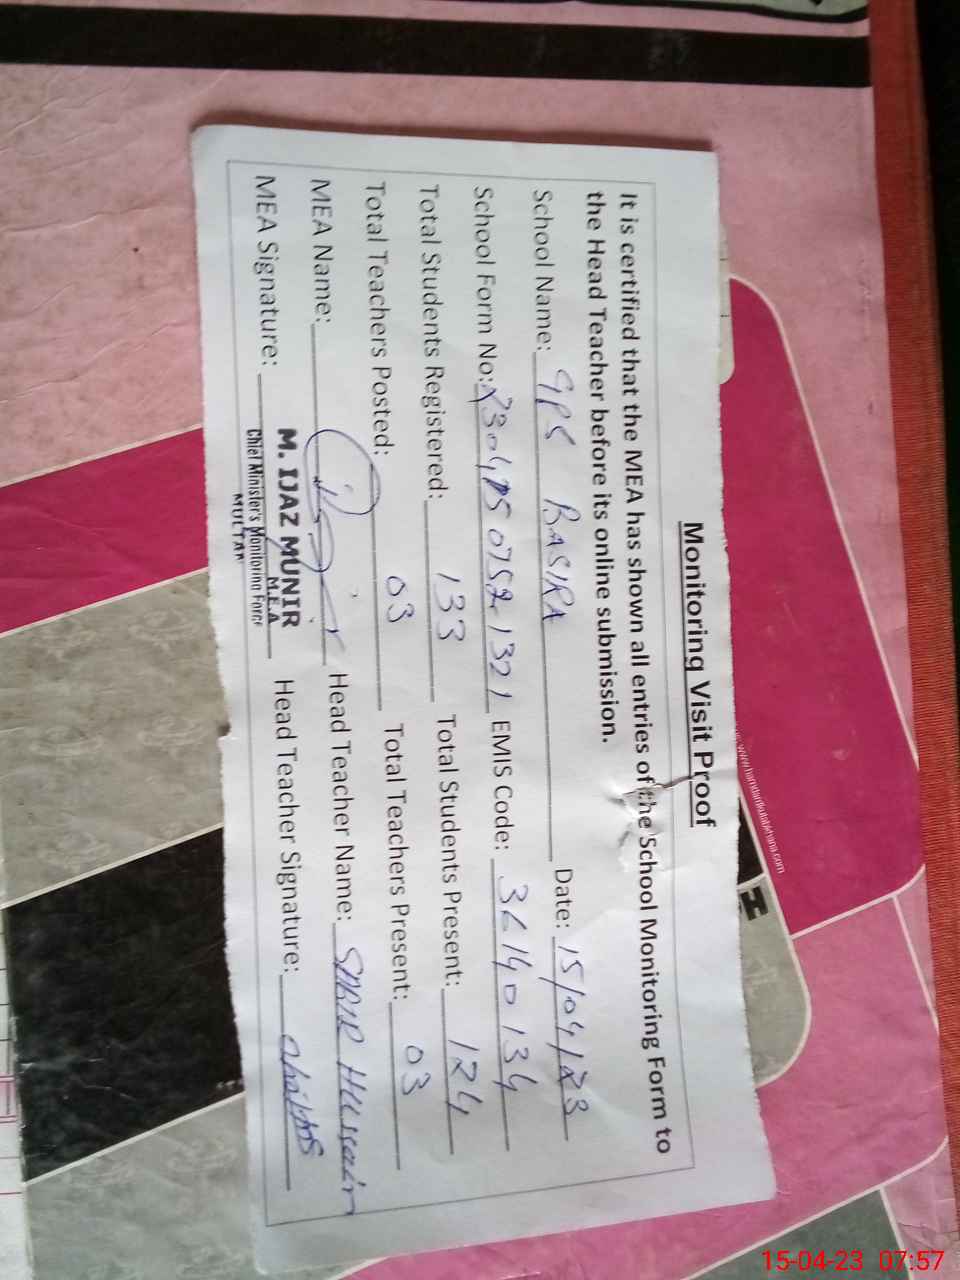 Monitoring Visit Proof
It is certified that the MEA has shown all entries of the School Monitoring Form to
the Head Teacher before its online submission.
School Name: GPS BASIRA Date: 15/04/23
School Form No: EMIS Code:
Total Students Registered: 133 Total Students Present: 124
Total Teachers Posted: 03 Total Teachers Present: 03
MEA Name: Head Teacher Name: Hussain
MEA Signature: Head Teacher Signature:
M. IJAZ MUNIR
M.E.A
Chief Minister's Monitoring Force
MULTAN
www.hamdardkutabkhana.com
H
15-04-23 07:57